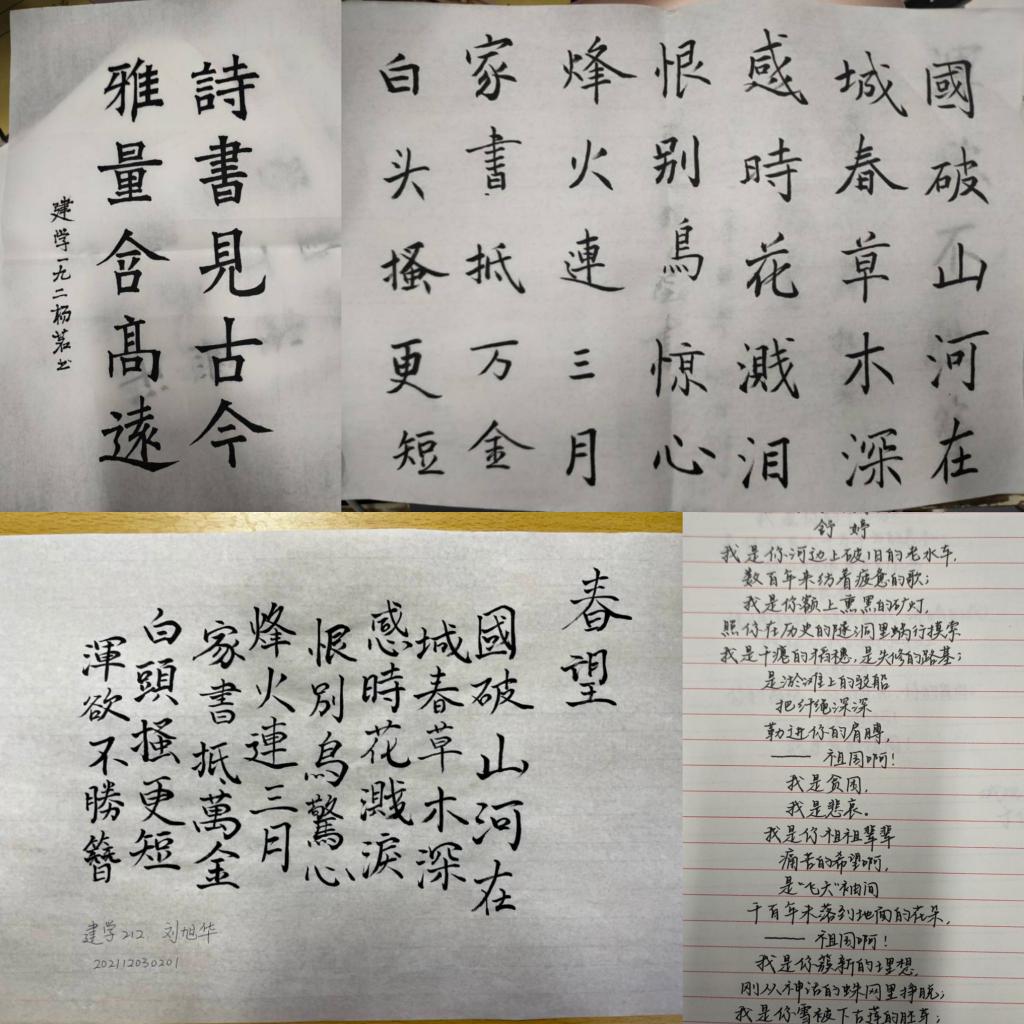 詩書見古今
雅量含高遠
建学一九二杨茗书
國破山河在
城春草木深
感時花溅泪
恨别鳥惊心
烽火連三月
家書抵万金
白头搔更短
春望
國破山河在
城春草木深
感時花濺淚
恨別鳥驚心
烽火連三月
家書抵萬金
白頭搔更短
渾欲不勝簪
建学212 刘旭华
202112030201
舒婷
我是你河边上破旧的老水车,
数百年来纺着疲惫的歌;
我是你额上熏黑的矿灯,
照你在历史的隧洞里蜗行摸索
我是干瘪的稻穗,是失修的路基;
是淤滩上的驳船
把纤绳深深
勒进你的肩膊,
—— 祖国啊!
我是贫困,
我是悲哀。
我是你祖祖辈辈
痛苦的希望啊,
是"飞天"袖间
千百年未落到地面的花朵,
—— 祖国啊!
我是你簇新的理想,
刚从神话的蛛网里挣脱;
我是你雪被下古莲的胚芽;